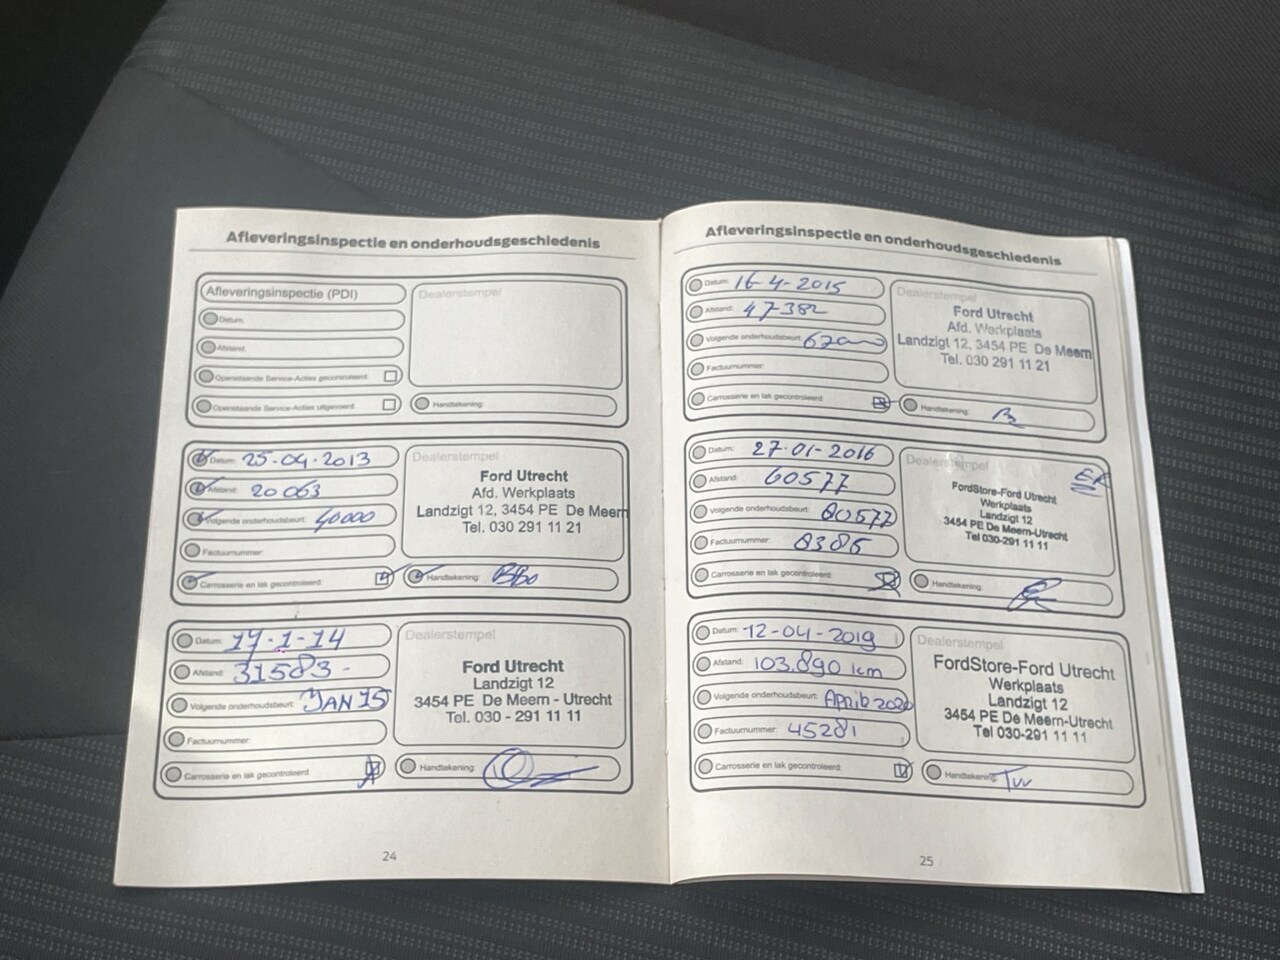 Afleveringsinspectie en onderhoudsgeschiedenis
Afleveringsinspectie (PDI)
Datum:
Afstand:
Openstaande Service-Acties gecontroleerd:
Openstaande Service-Acties uitgevoerd:
Dealerstempel
Handtekening:
Datum: 25.04.2013
Afstand: 20063
Volgende onderhoudsbeurt: 40000
Factuurnummer:
Carrosserie en lak gecontroleerd:
Dealerstempel
Ford Utrecht
Afd. Werkplaats
Landzigt 12, 3454 PE De Meern
Tel. 030 291 11 21
Handtekening:
Datum: 17-1-14
Afstand: 31583-
Volgende onderhoudsbeurt: JAN 15
Factuurnummer:
Carrosserie en lak gecontroleerd:
Dealerstempel
Ford Utrecht
Landzigt 12
3454 PE De Meern - Utrecht
Tel. 030 - 291 11 11
Handtekening:
24
Afleveringsinspectie en onderhoudsgeschiedenis
Datum: 16-4-2015
Afstand: 47382
Volgende onderhoudsbeurt:
Factuurnummer:
Carrosserie en lak gecontroleerd:
Dealerstempel
Ford Utrecht
Afd. Werkplaats
Landzigt 12, 3454 PE De Meern
Tel. 030 291 11 21
Handtekening:
Datum: 27-01-2016
Afstand: 60577
Volgende onderhoudsbeurt: 80577
Factuurnummer: 8386
Carrosserie en lak gecontroleerd:
Dealerstempel
FordStore-Ford Utrecht
Werkplaats
Landzigt 12
3454 PE De Meern-Utrecht
Tel 030-291 11 11
Handtekening:
Datum: 12-04-2019
Afstand: 103.890 km
Volgende onderhoudsbeurt: April 2020
Factuurnummer: 45281
Carrosserie en lak gecontroleerd:
Dealerstempel
FordStore-Ford Utrecht
Werkplaats
Landzigt 12
3454 PE De Meern-Utrecht
Tel 030-291 11 11
Handtekening:
25